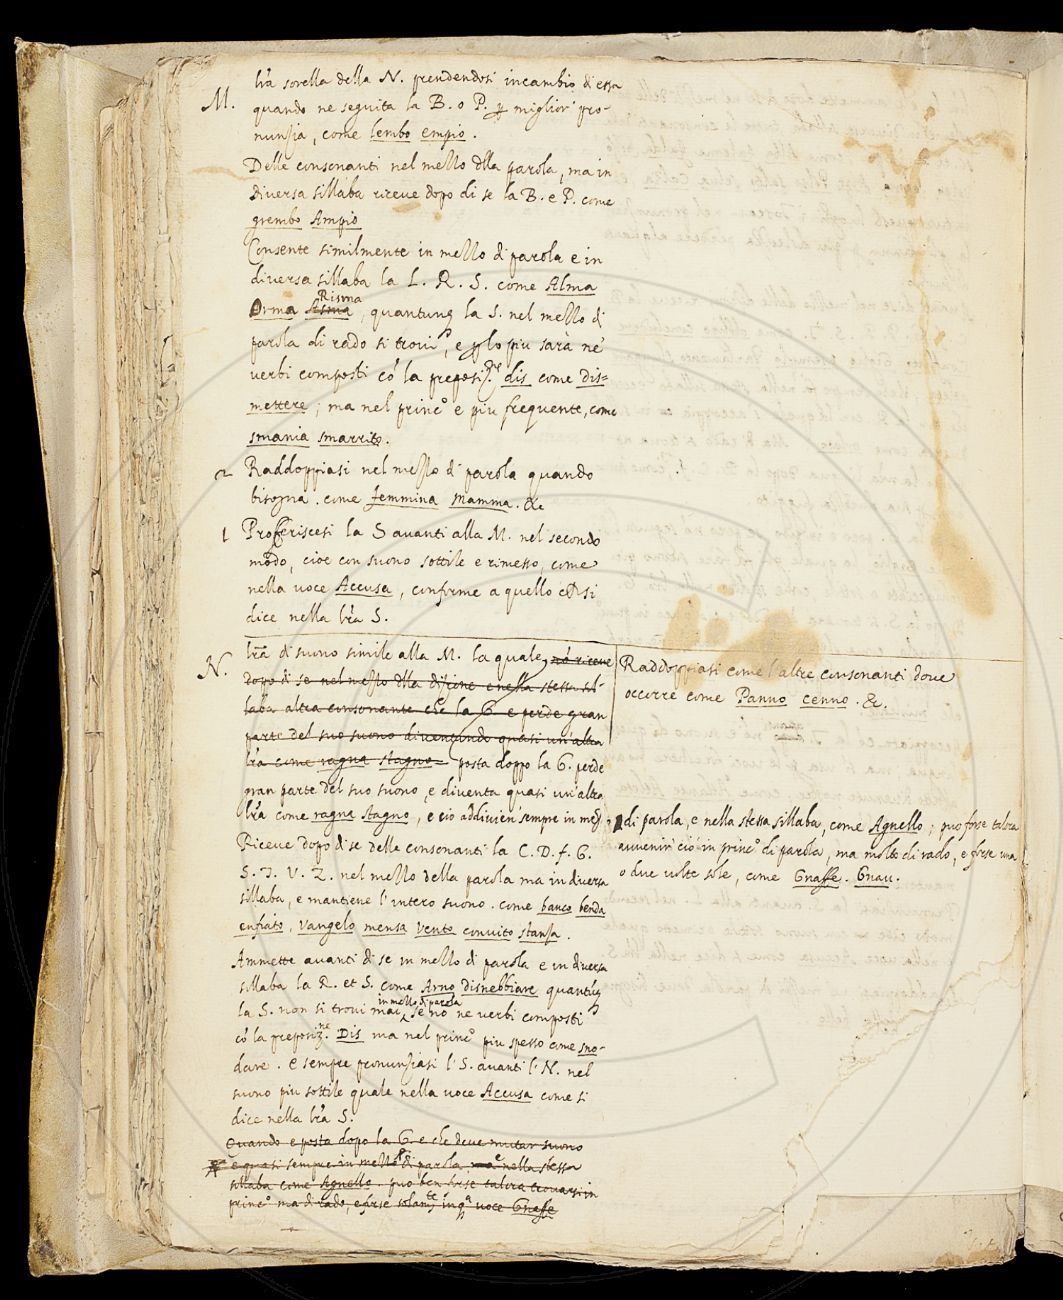 M.
lr̃a sorella della N. prendendosi incambio d'essa
quando ne seguita la B. o P. p̱ miglior' pro-
nunzia, come lembo empio.
Delle consonanti nel mezzo dlla parola, ma in
diversa sillaba riceve dopo di se la B. e P. come
grembo Ampio
Consente similmente in mezzo di parola e in
diversa sillaba la L. R. S. come Alma
Orma Asma Risma, quantunq la S. nel mezzo di
parola di rado si trovi, e p̱ lo piu sarà ne'
verbi composti cõ la preposiz.ne dis come dis=
mettere; ma nel princ.o e piu frequente, come
smania smarrito.
2 Raddoppiasi nel mezzo di parola quando
bisogna. come femmina Mamma. &c
1 Profferiscesi la S avanti alla M. nel secondo
modo, cioe con suono sottile e rimesso, come
nella voce Accusa, conforme a quello che si
dice nella lr̃a S.
N.
lr̃a di suono simile alla M. la quale nõ riceve
dopo di se nel mezzo dlla dizione e nella stessa sil-
laba altra consonante che la G e perde gran
parte del suo suono diventando quasi un'altra
lr̃a come ragna stagno posta doppo la G. perde
gran parte del suo suono, e diventa quasi un'altra
lr̃a come ragna stagno, e ciò addivien' sempre in mezzo
di parola, e nella stessa sillaba, come Agnello; può forse talora
avvenir' ciò in princ.o di parola, ma molto di rado, e forse una
o due volte sole, come Gnaffe. Gnau.
Riceve dopo di se delle consonanti la C. D. f. G.
S. T. V. Z. nel mezzo della parola ma in diversa
sillaba, e mantiene l'intero suono. come banco benda
enfiato, Vangelo mensa Vento convito stanza.
Ammette avanti di se in mezzo di parola e in diversa
sillaba la R. et S. come Arno disnebbiare quantunq
la S. non si trovi mai in mezzo di parola se nõ ne verbi composti
cõ la preposiz.ne Dis ma nel princ.o piu spesso come sno-
dare. e sempre pronunziasi l'S. avanti l'N. nel
suono piu sottile quale nella voce Accusa come si
dice nella lr̃a S.
Quando e posta dopo la G. e che deve mutar suono
e quasi sempre in mezzo di parola, e nella stessa
sillaba come Agnello. puo ben forse talora trovarsi in
princ.o ma di rado, e forse solam.te in q.a voce Gnaffe
Raddoppiasi come l'altre consonanti dove
occorre come Panno cenno. &c.